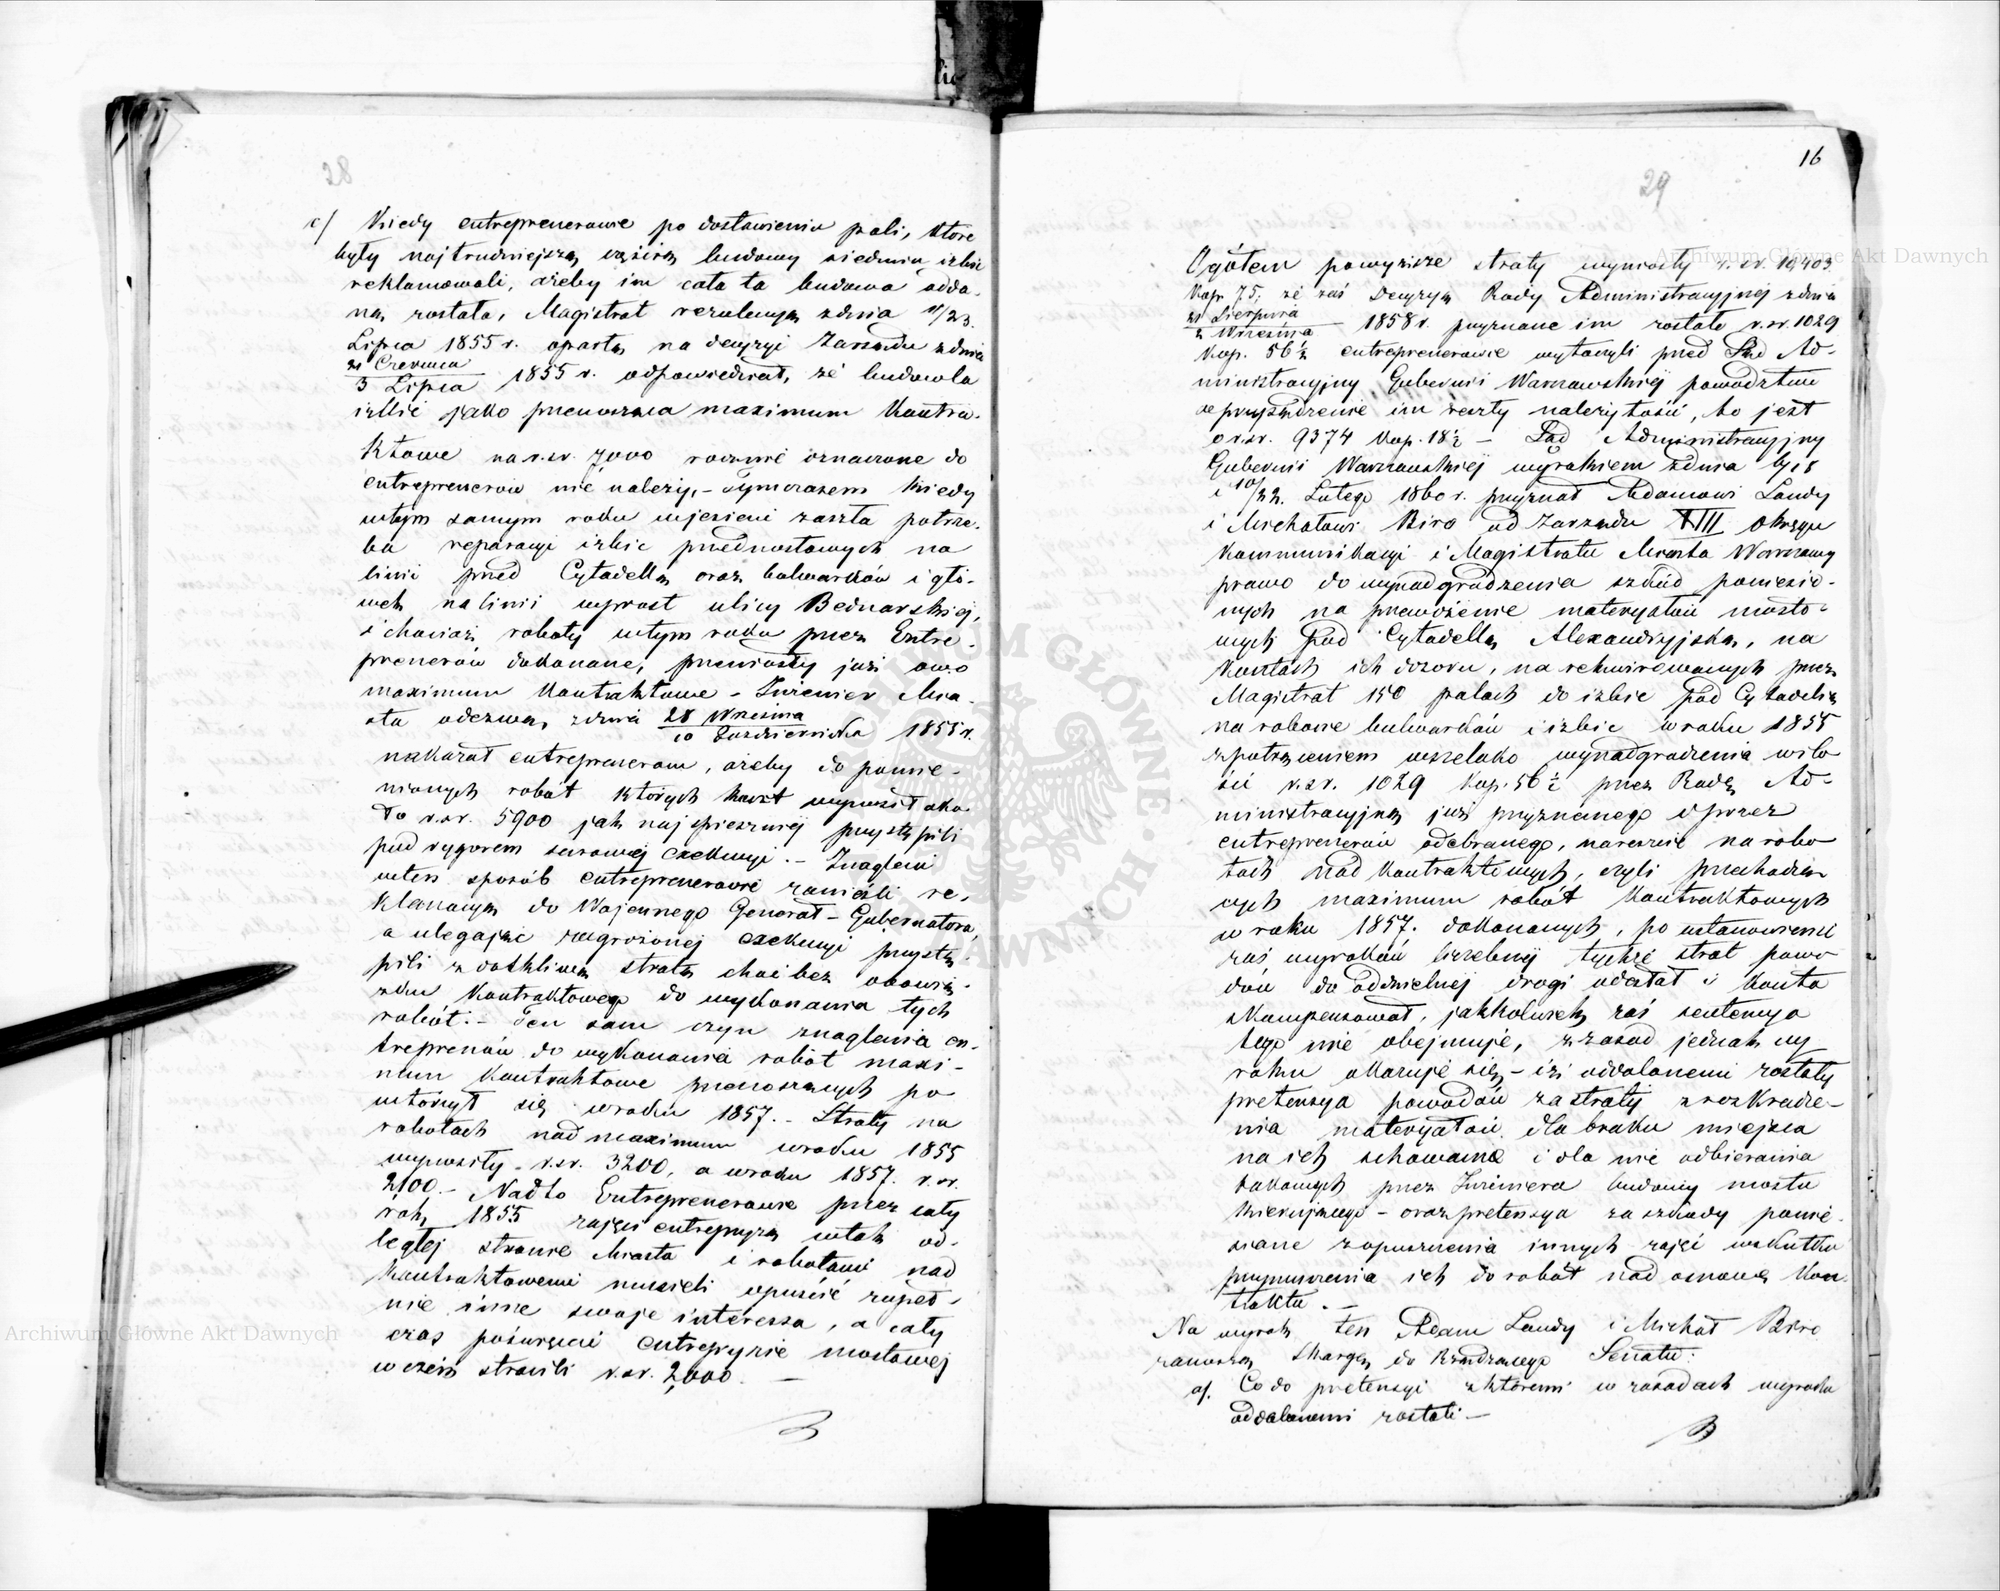 28
c/ Kiedy entreprenerowie po dostawieniu pali, które
były najtrudniejszą częścią budowy siedmiu izbic
reklamowali, ażeby im cała ta budowa odda-
ną została, Magistrat rezolucyą z dnia 11/23.
Lipca 1855 r. opartą na decyzyi Zarządu z dnia
21 Czerwca / 3 Lipca 1855 r. odpowiedział, że budowla
izbic jako przenosząca maximum Kontra-
ktowe na r.sr. 7000 rocznie oznaczone do
entreprenerów nie należy, – Tymczasem kiedy
w tym samym roku w jesieni zaszła potrze-
ba reparacyi izbic przedmostowych na
linii przed Cytadellą oraz bulwarków i głó-
wek na linii wprost ulicy Bednarskiej,
i chociaż roboty w tym roku przez Entre-
prenerów dokonane, przeniosły już owo
maximum Kontraktowe – Inżenier Mia-
sta odezwą z dnia 28 Września / 10 Października 1855 r.
nakazał entreprenerom, ażeby do pomie-
nionych robót których koszt wynosił oko-
ło r.sr. 5900 jak najspieszniej przystąpili
pod rygorem surowej exekucyi. – Znagleni
w ten sposób entreprenerowie zanieśli re-
klamacyą do Wojennego Generał-Gubernatora,
a ulegając zagrożonej exekucyi przystą-
pili z dotkliwą stratą choć bez obowią-
zku Kontraktowego do wykonania tych
robót. – Ten sam czyn znaglenia en-
treprenerów do wykonania robót maxi-
mum Kontraktowe przenoszących po
wtórzył się w roku 1857. – Straty na
robotach nad maximum w roku 1855
wynosiły r.sr. 3200, a w roku 1857. r.sr.
2100. – Nadto Entreprenerowie przez cały
rok 1855 zajęci entrepryzą w tak od-
ległej stronie Miasta i robotami nad
Kontraktowemi musieli opuścić zupeł-
nie inne swoje interessa, a cały
czas poświęcić entrepryzie mostowej
w czem stracili r.sr. 2,000. –
16
29
Ogółem powyższe straty wynosiły r.sr. 10403.
Kop. 75; że zaś Decyzyą Rady Administracyjnej z dnia
21 Sierpnia / 2 Września 1858 r. przyznane im zostało r.sr. 1029
Kop. 56½ entreprenerowie wytoczyli przed Sąd Ad-
ministracyjny Gubernii Warszawskiej powództwo
o przysądzenie im reszty należytości, to jest
o r.sr. 9374 Kop. 18½ – Sąd Administracyjny
Gubernii Warszawskiej wyrokiem z dnia 6/18
i 10/22. Lutego 1860 r. przyznał Adamowi Landy
i Michałowi Biro od Zarządu XIII Okręgu
Kommunikacyi i Magistratu Miasta Warszawy
prawo do wynadgrodzenia szkód poniesio-
nych na przewożenie materyałów mosto-
wych pod Cytadellą Alexandryjską, na
Kosztach ich dozoru, na rekwirowanych przez
Magistrat 150 palach do izbic pod Cytadellą
na robocie bulwarków i izbic w roku 1855
z potrąceniem wszelako wynadgrodzenia w ilo-
ści r.sr. 1029 Kop. 56½ przez Radę Ad-
ministracyjną już przyznanego i przez
entreprenerów odebranego, nareszcie na robo-
tach nad Kontraktowych, czyli przechodzą-
cych maximum robót Kontraktowych
w roku 1857. dokonanych, po ustanowienie
zaś wyrokań liczebnej tychże strat powo-
dów do oddzielnej drogi odesłał i Koszta
skompensował, jakkolwiek zaś sentencya
tego nie obejmuje, z zasad jednak wy
roku okazuje się – iż oddalonemi zostały
pretensya powodów za straty z rozkradze-
nia materyałów dla braku miejsca
na ich schowanie i dla nie odbierania
takowych przez Inżiniera budowy mostu
kierującego – oraz pretensya za szkody ponie-
sione z opuszczenia innych zajęć w skutku
przymuszenia ich do robót nad osnowę Kon-
traktu. –
Na wyrok ten Adam Landy i Michał Biro
zanoszą skargę do Rządzącego Senatu:
a/. Co do pretensyi z któremi w zasadach wyroku
oddalonemi zostali –